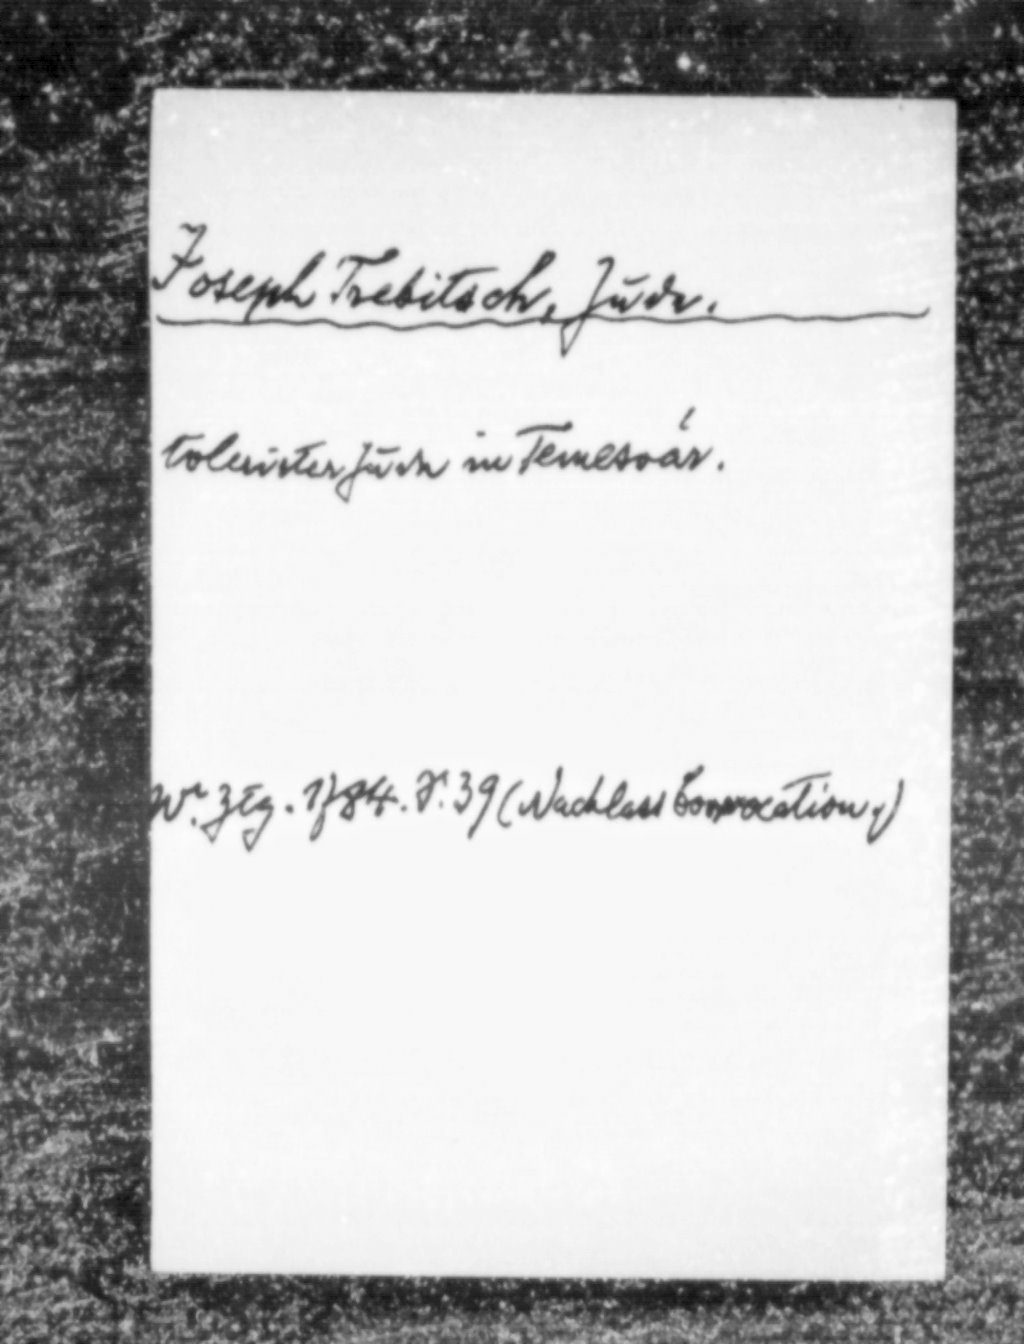 Joseph Trebitsch, Jude.
tolerirter Jude in Temesvár.
Wr. Ztg. 1784. S. 39 (Nachlass Convocation.)